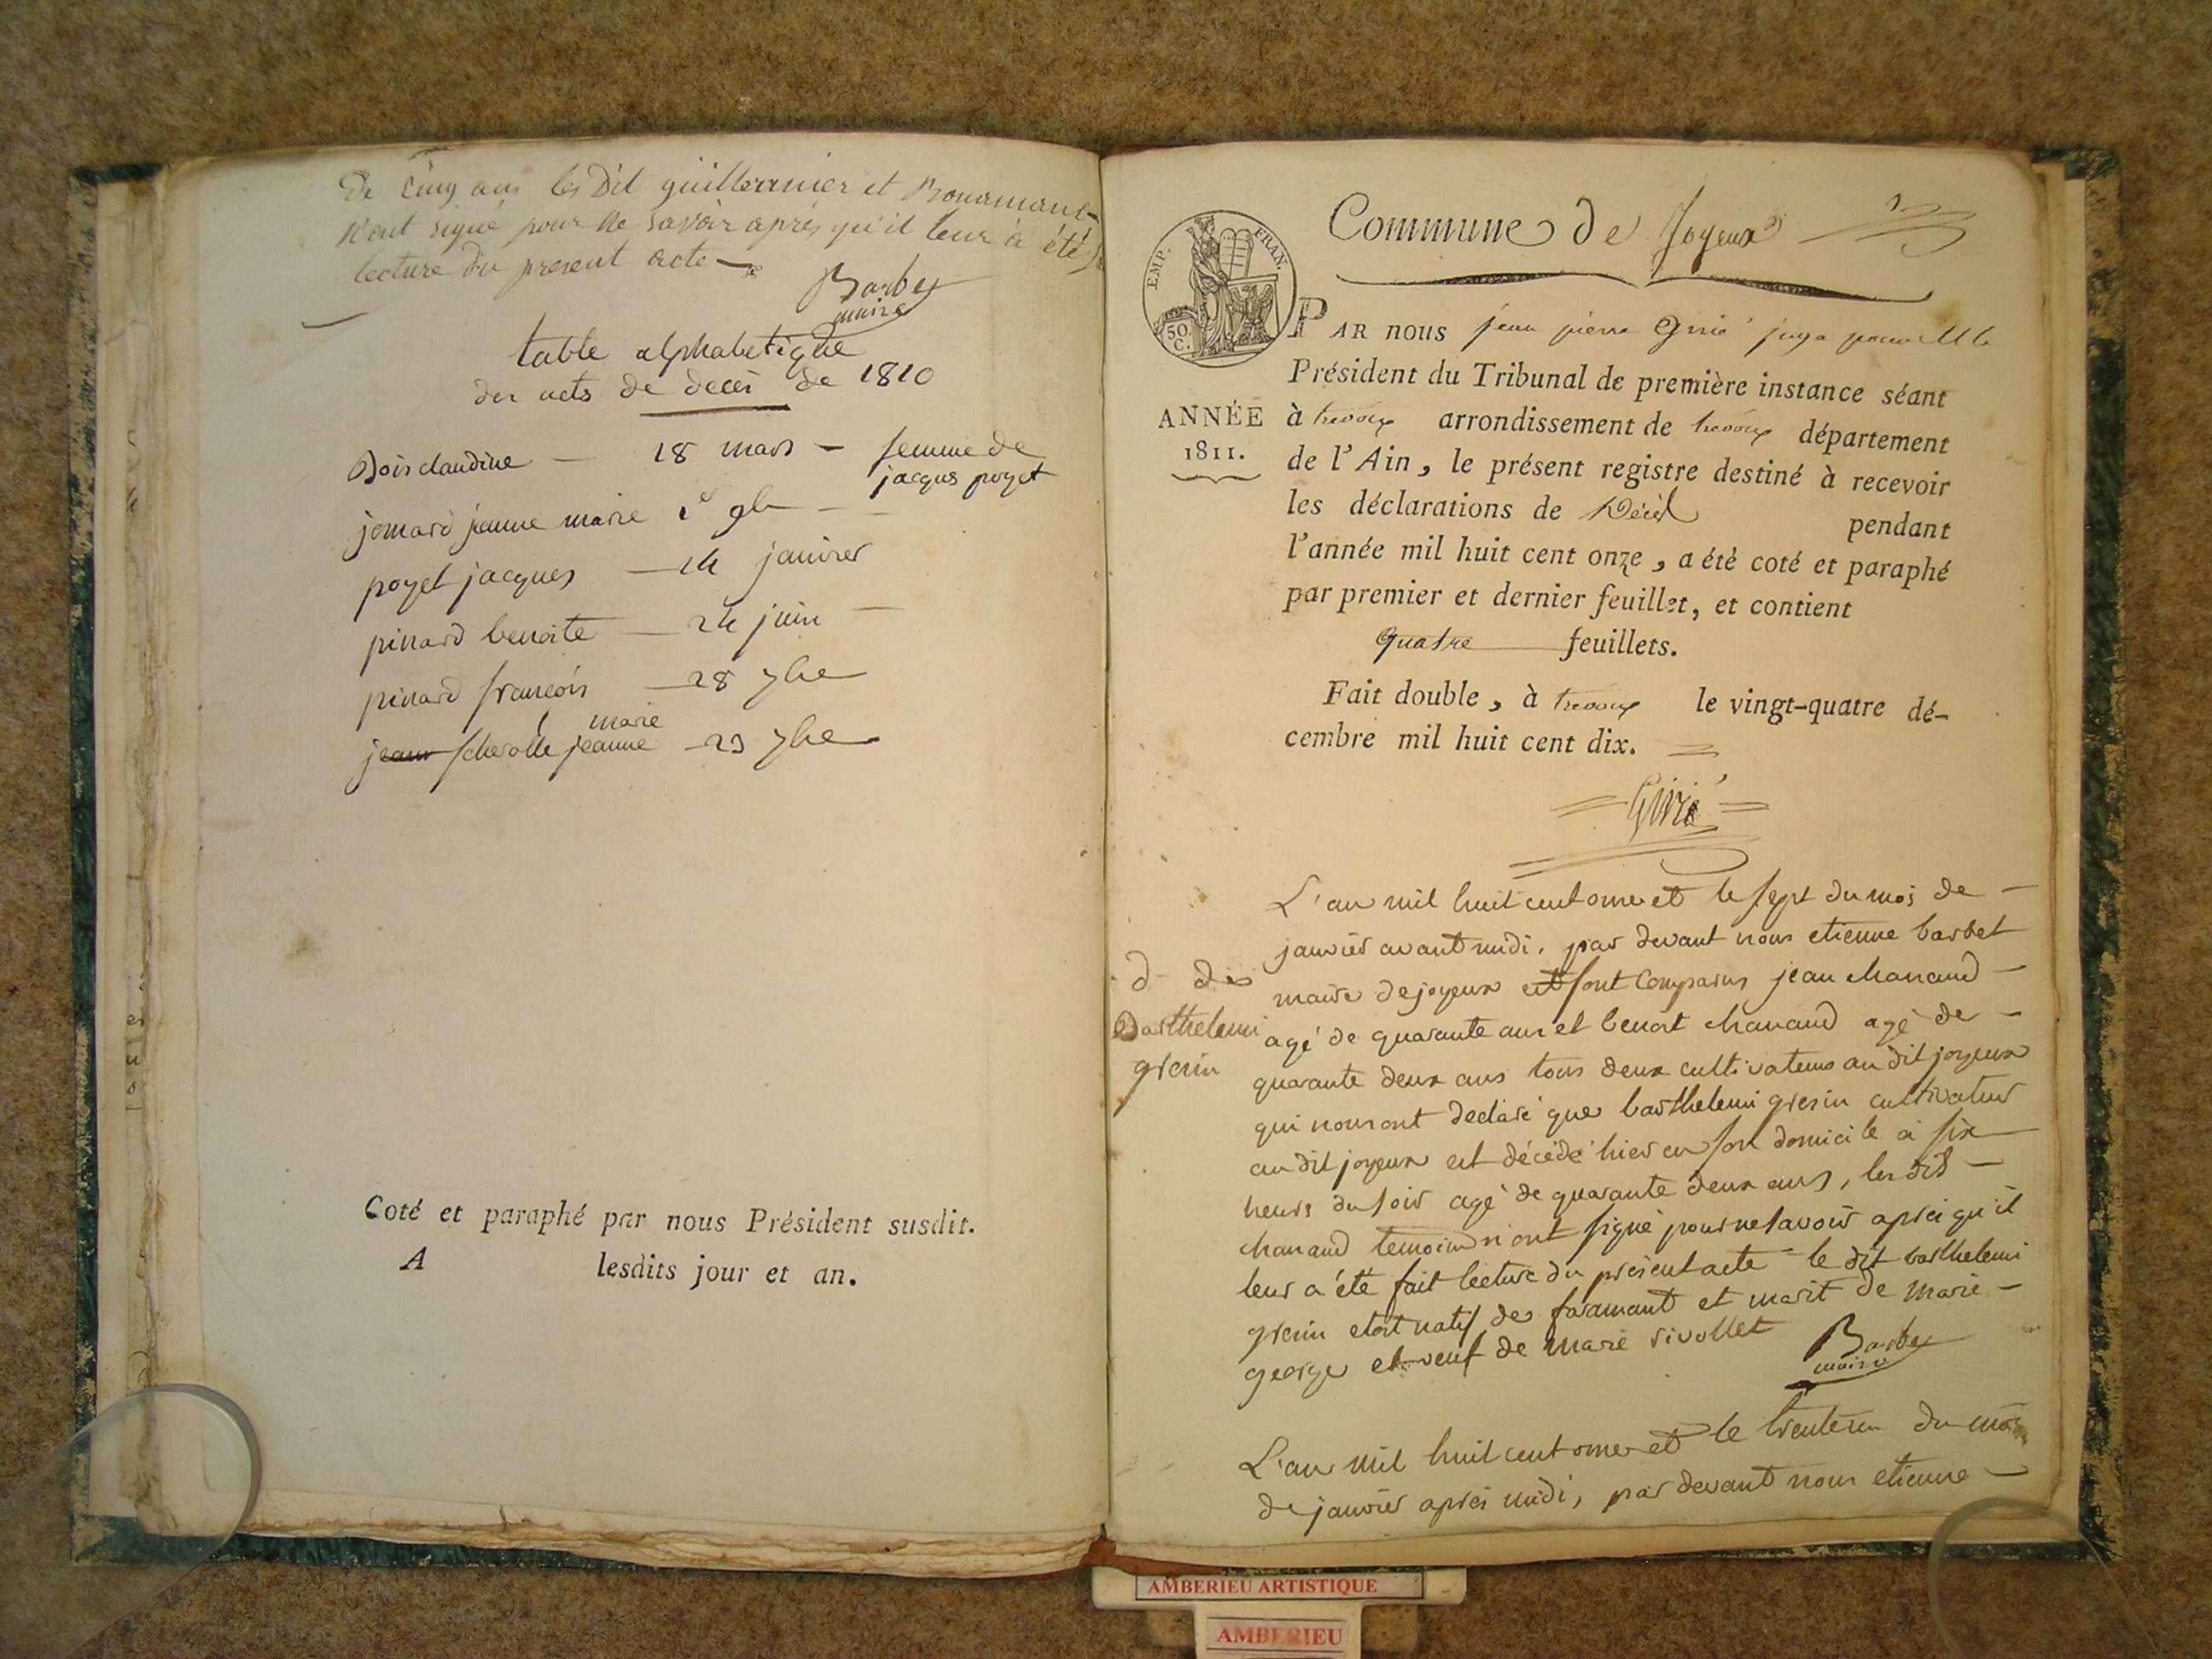 De Cinq ans les Dit guilleranier et Bonamant
n'ont signé pour ne savoir après qu'il leur a été
lecture du present acte
Barbet
maire
table alphabetique
des acts de deces de 1810
Bois claudine — 18 mars — femme de
jacques poyet
jomard jeanne marie 1er 9b —
poyet jacques — 14 janvier
pinard benoite — 24 juin —
pinard francois — 28 7bre
marie
jean jeanne — 29 7bre
Coté et paraphé par nous Président susdit.
A lesdits jour et an.
Commune de Joyeux
EMP. FRAN.
50 C.
PAR nous jean pierre Girié juge pour M le
Président du Tribunal de première instance séant
ANNÉE
1811.
à trevoux arrondissement de trevoux département
de l'Ain, le présent registre destiné à recevoir
les déclarations de Décès pendant
l'année mil huit cent onze, a été coté et paraphé
par premier et dernier feuillet, et contient
quatre feuillets.
Fait double, à trevoux le vingt-quatre dé-
cembre mil huit cent dix.
Girié
d. de
Barthelemi
gresin
L'an mil huit cent onze et le sept du mois de —
janvier avant midi, par devant nous etienne barbet
maire de joyeux sont comparus jean chanaud —
agé de quarante ans et benoit chanaud agé de —
quarante deux ans tous deux cultivateurs au dit joyeux
qui nous ont declaré que barthelemi gresin cultivateur
au dit joyeux est décédé hier en son domicile à six
heurs du soir agé de quarante deux ans, les dits —
chanaud temoins n'ont signé pour ne savoir après qu'il
leur a été fait lecture du présent acte le dit barthelemi
gresin etoit natif de faramant et marit de marie —
george et veuf de marie rivollet
Barbet
maire
L'an mil huit cent onze et le trente un du mois
de janvier après midi, par devant nous etienne —
AMBERIEU ARTISTIQUE
AMBERIEU